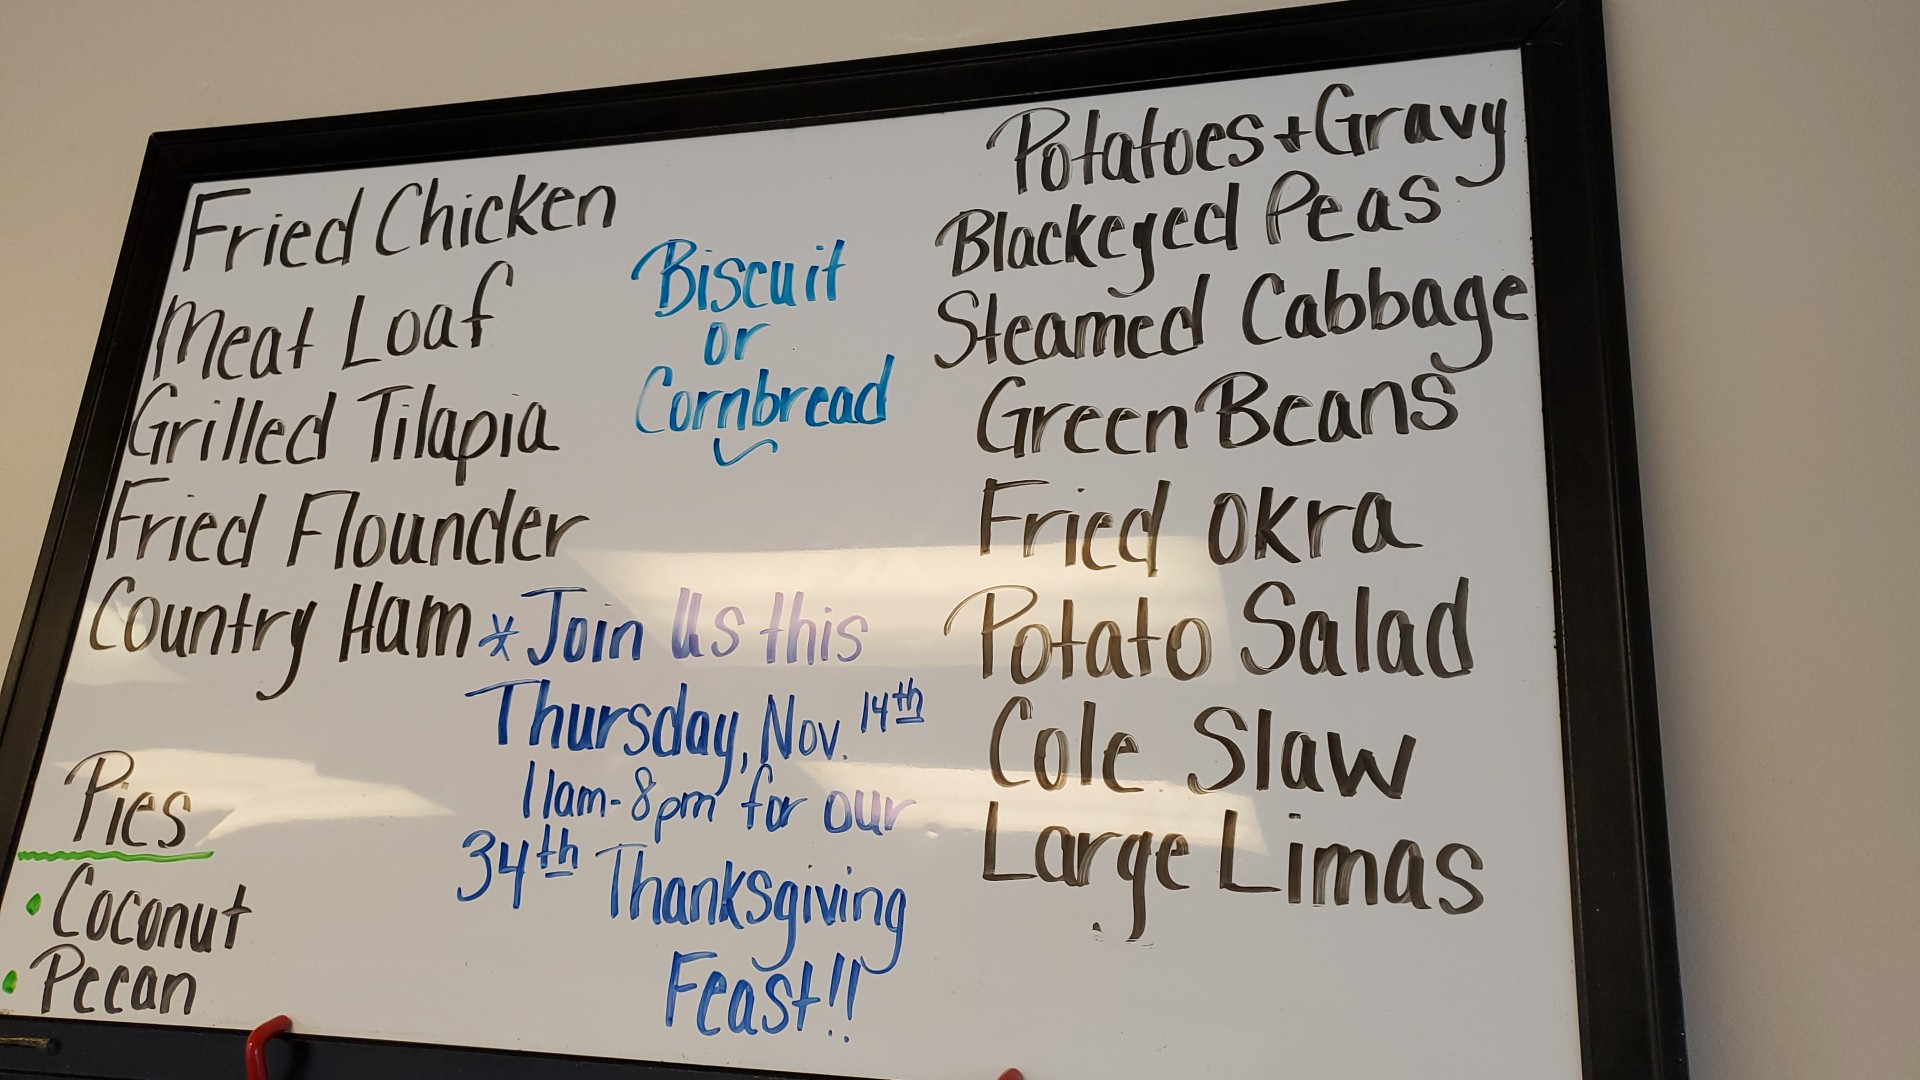 Fried Chicken
Meat Loaf
Grilled Tilapia
Fried Flounder
Country Ham
Biscuit
or
Cornbread
Potatoes + Gravy
Blackeyed Peas
Steamed Cabbage
Green Beans
Fried Okra
Potato Salad
Cole Slaw
Large Limas
* Join Us this
Thursday, Nov. 14th
11am-8pm for our
34th Thanksgiving
Feast!!
Pies
• Coconut
• Pecan